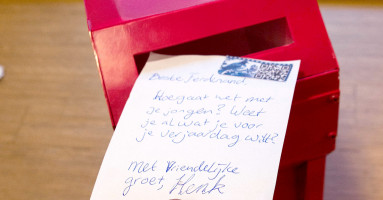 Beste Ferdinand,
Hoe gaat het met
je jongen? Weet
je al wat je voor
je verjaardag wilt?
Met Vriendelijke
groet, Henk